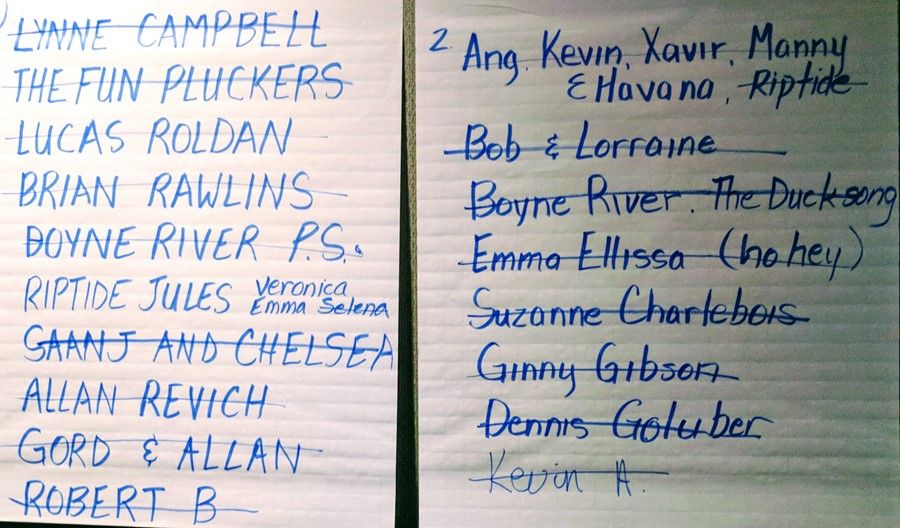 LYNNE CAMPBELL
THE FUN PLUCKERS
LUCAS ROLDAN
BRIAN RAWLINS
BOYNE RIVER P.S.
RIPTIDE JULES Veronica
Emma Selena
SAANJ AND CHELSEA
ALLAN REVICH
GORD & ALLAN
ROBERT B
2. Ang, Kevin, Xavir, Manny
& Havana, Riptide
Bob & Lorraine
Boyne River. The Ducksong
Emma Ellissa (ho hey)
Suzanne Charlebois
Ginny Gibson
Dennis Goluber
Kevin A.